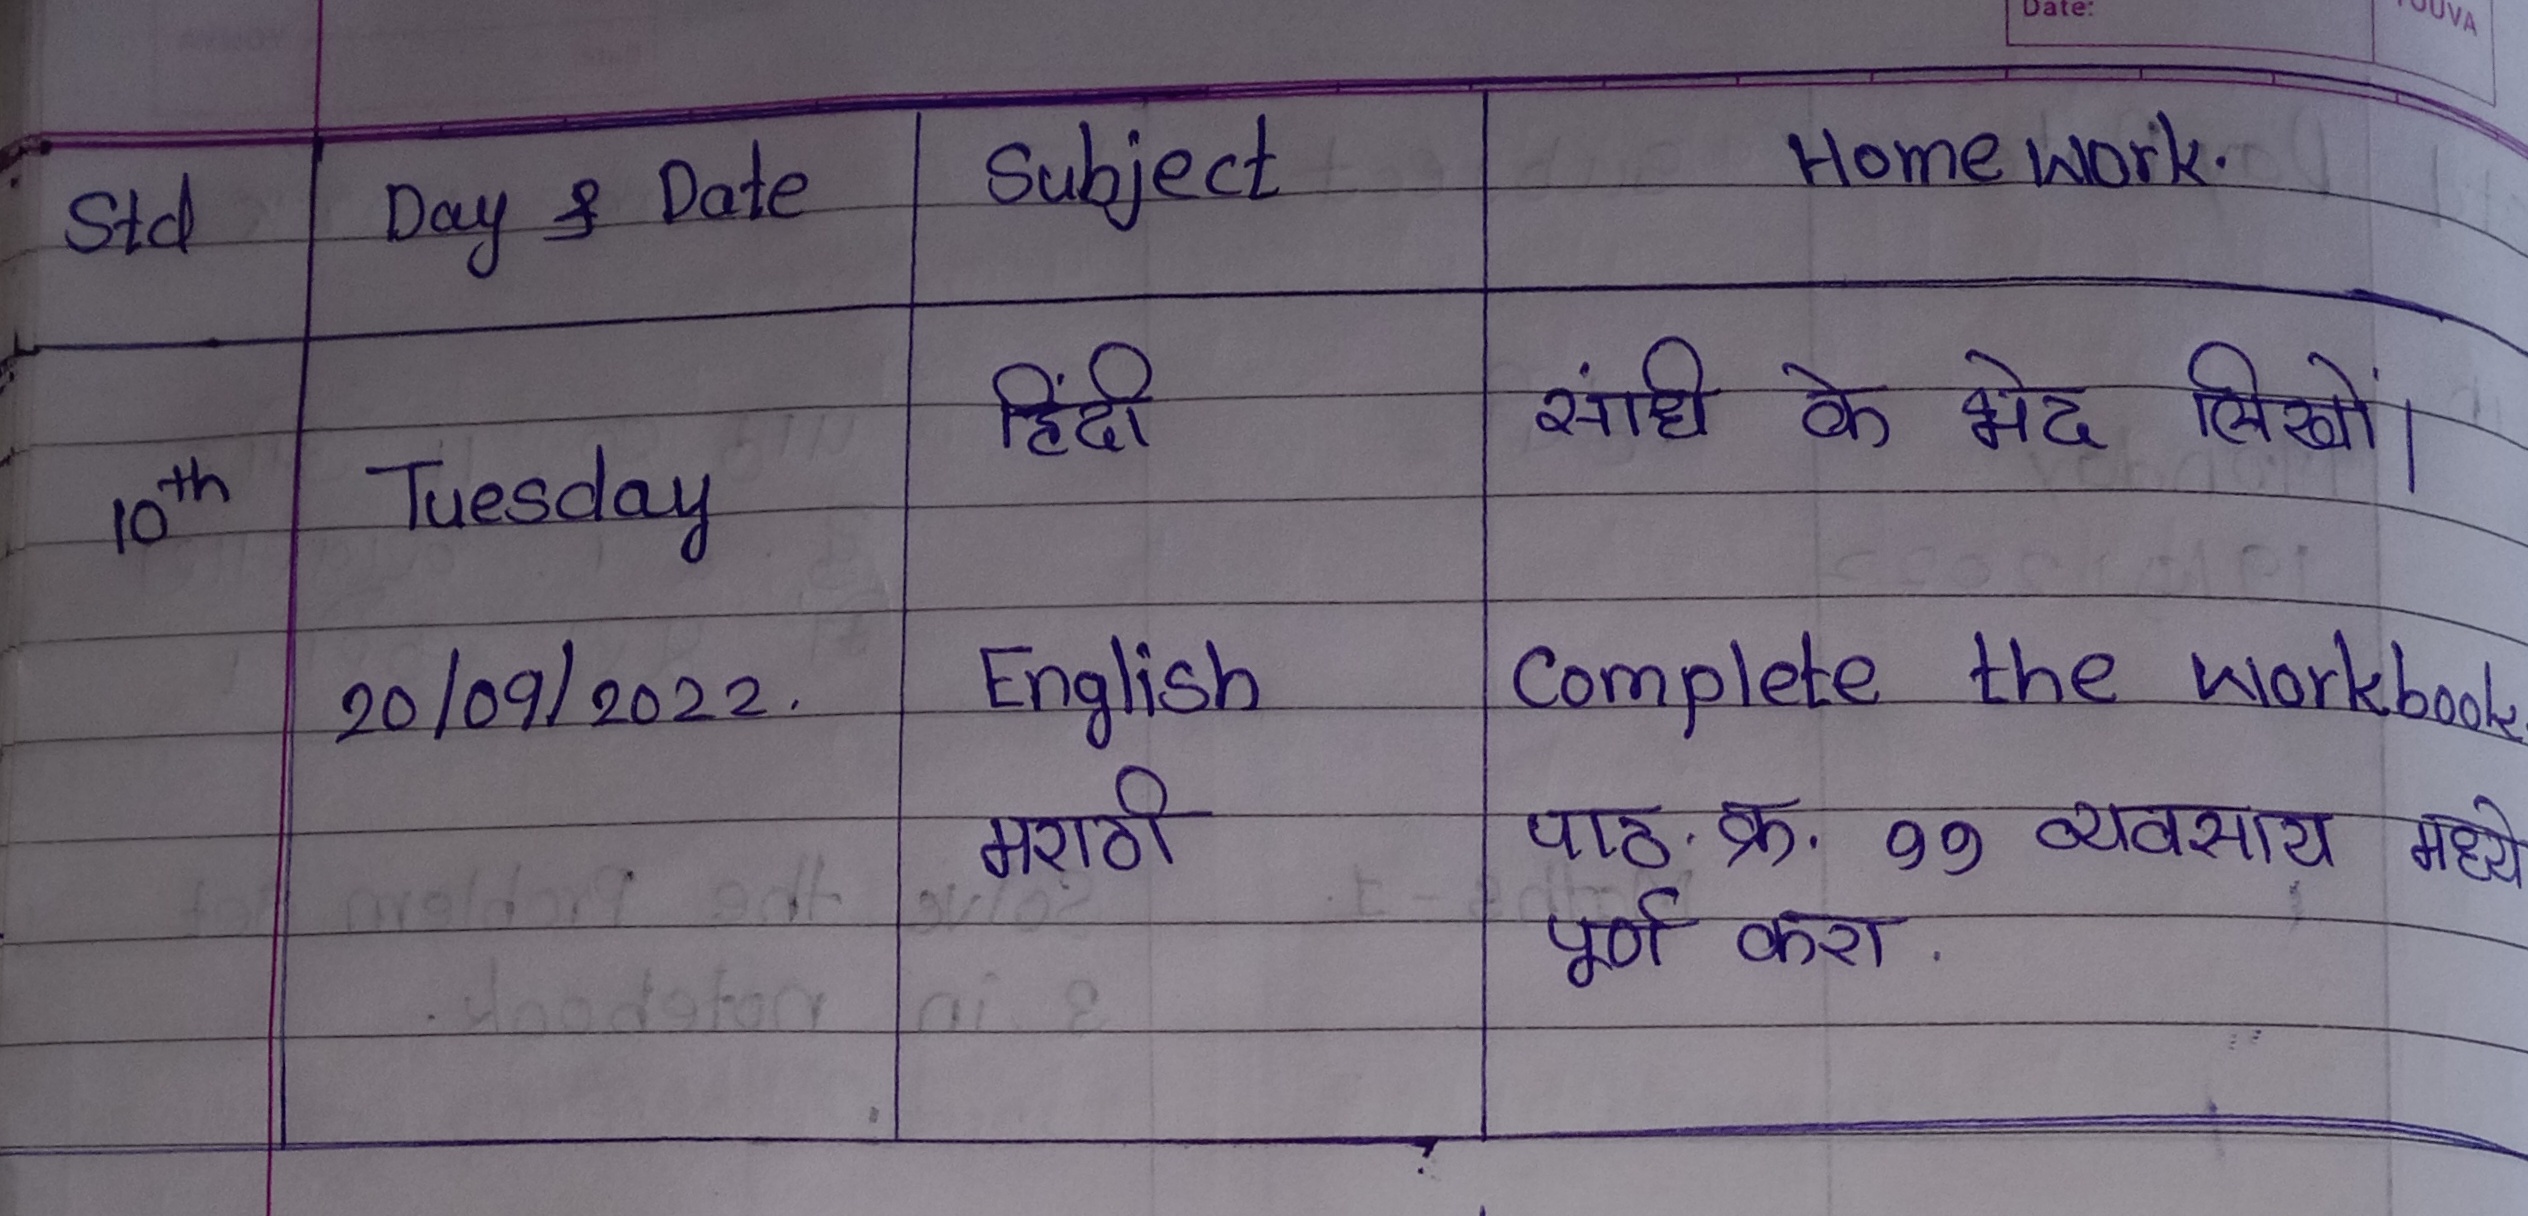 Date:
YOUVA
Std Day & Date Subject Homework.
हिंदी सांधी के भेद लिखों।
10th Tuesday
20/09/2022. English Complete the workbook.
मराठी पाठ. क्र. ११ व्यवसाय मध्ये
पूर्ण करा.